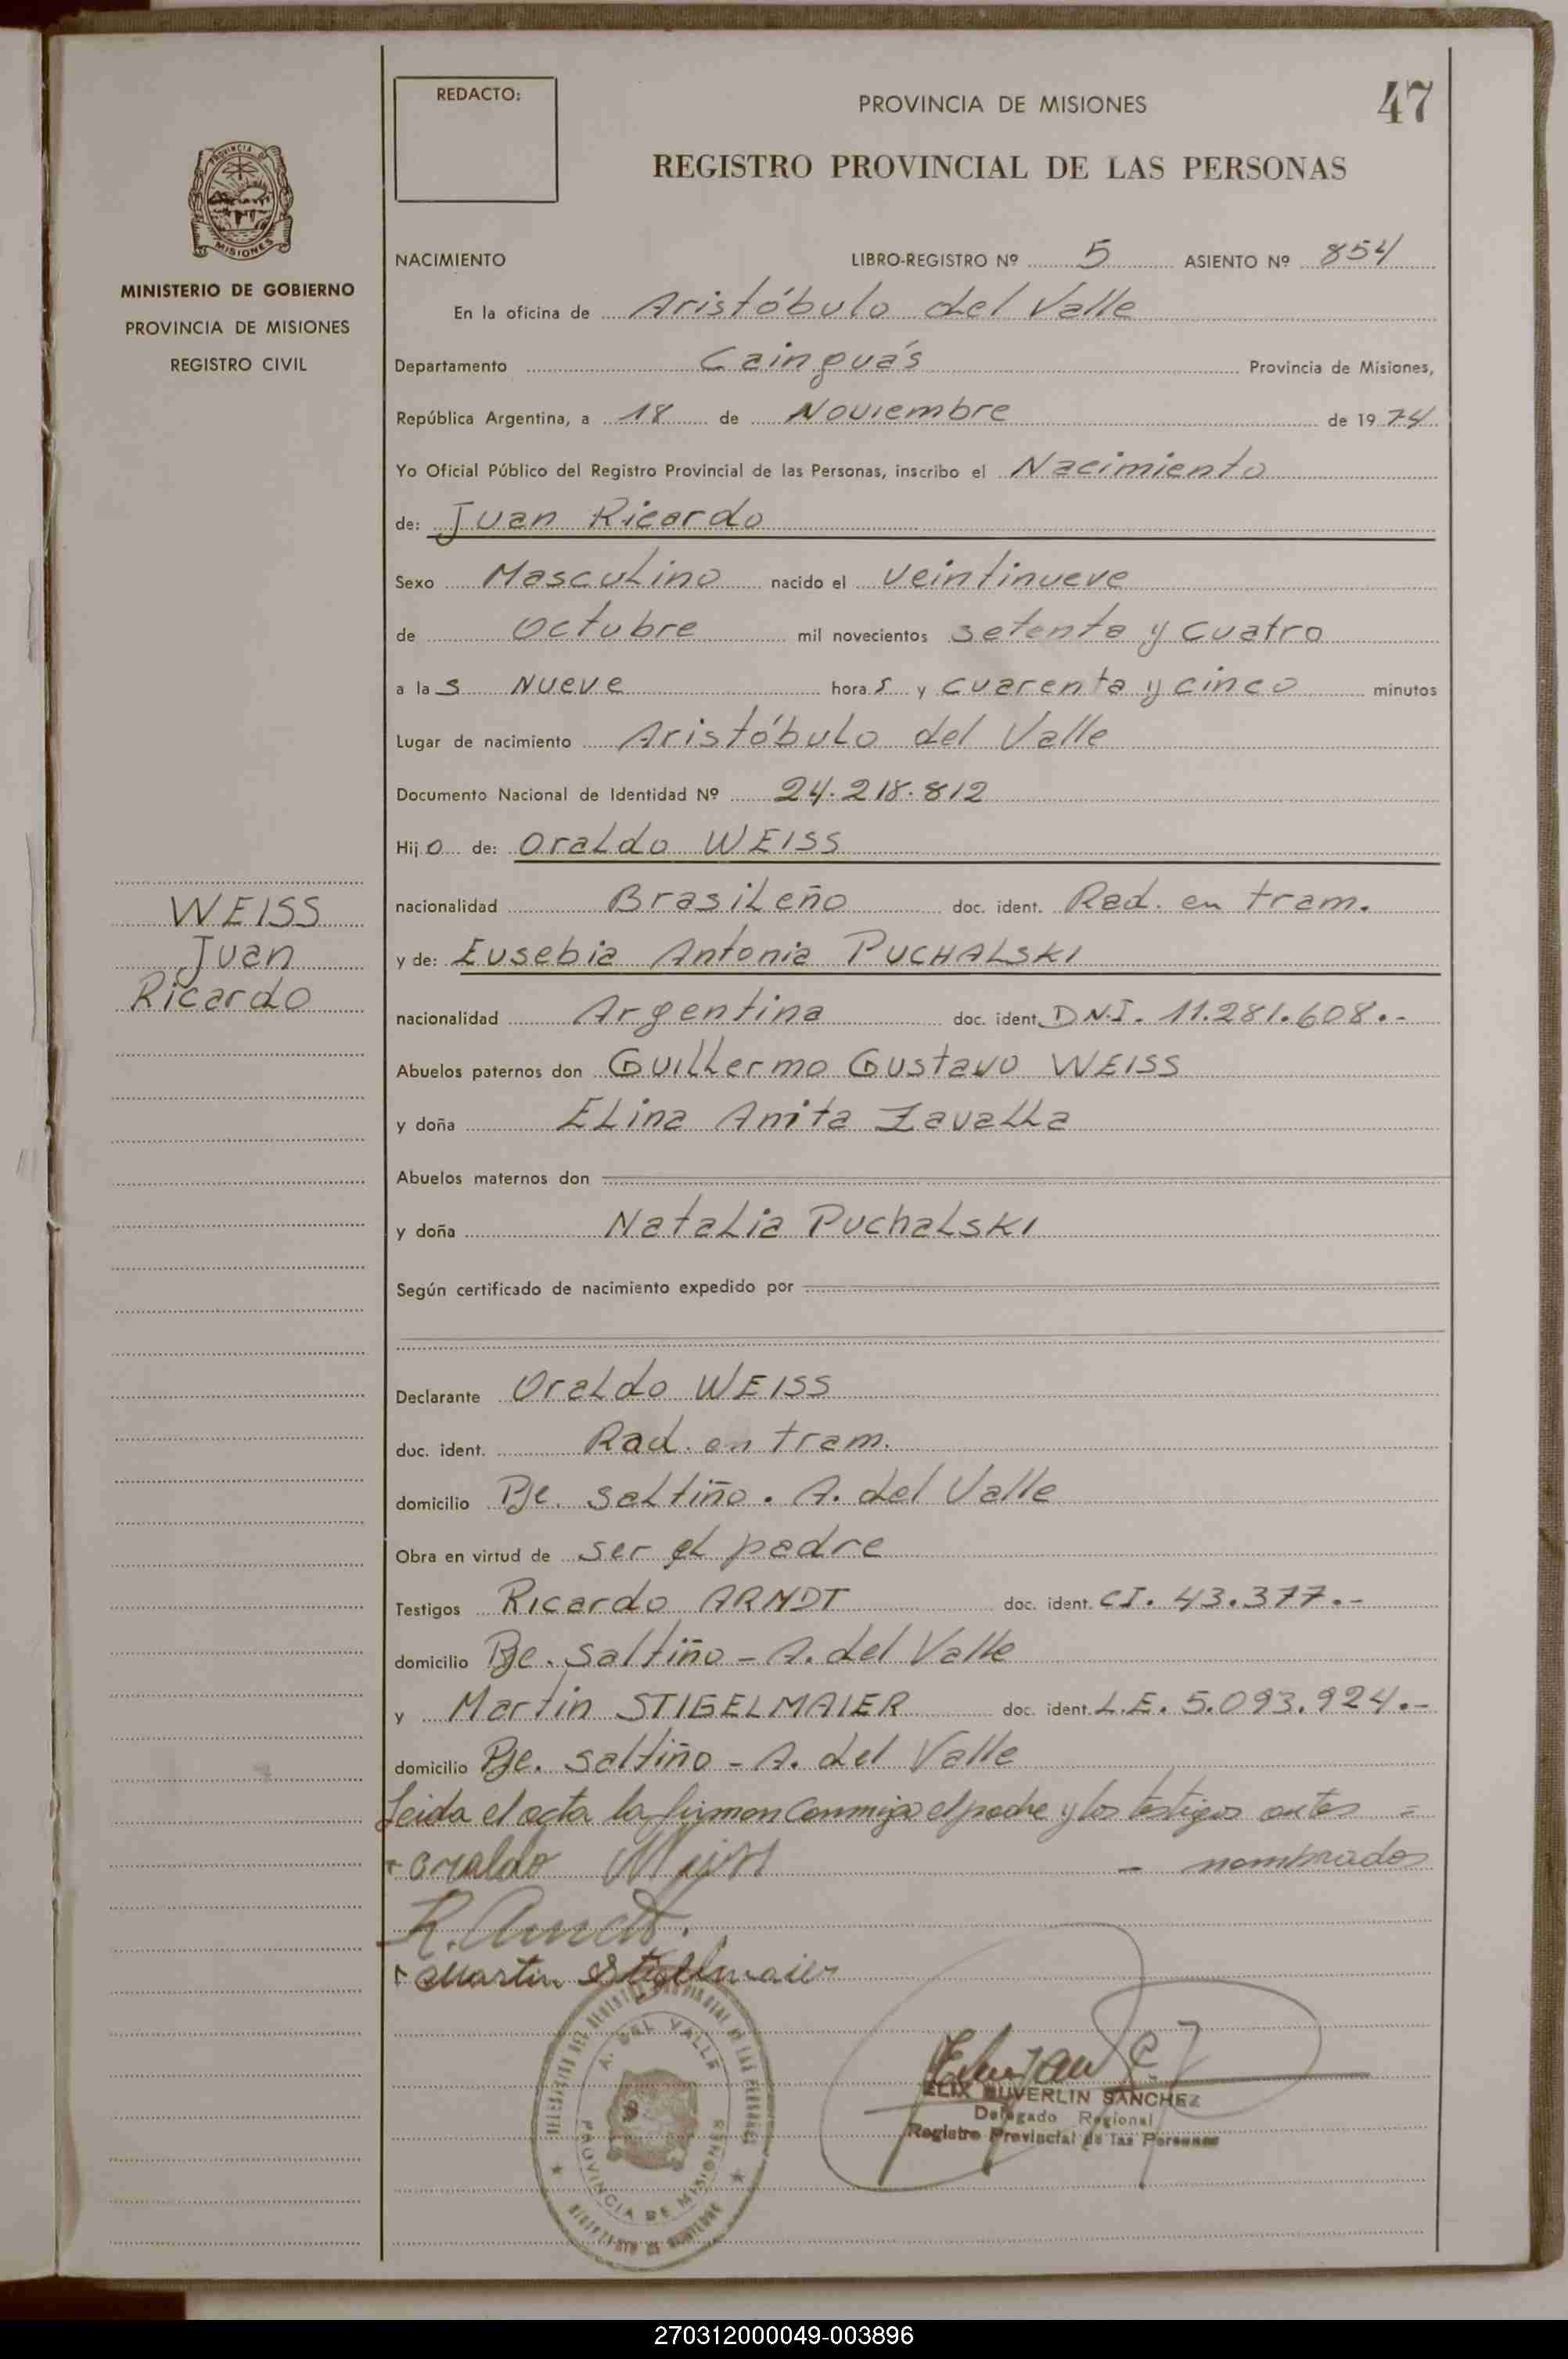 REDACTO:
PROVINCIA DE MISIONES
47
REGISTRO PROVINCIAL DE LAS PERSONAS
PROVINCIA DE
MISIONES
MINISTERIO DE GOBIERNO
PROVINCIA DE MISIONES
REGISTRO CIVIL
NACIMIENTO LIBRO-REGISTRO Nº 5 ASIENTO Nº 854
En la oficina de Aristóbulo del Valle
Departamento Cainguás Provincia de Misiones,
República Argentina, a 18 de Noviembre de 1974
Yo Oficial Público del Registro Provincial de las Personas, inscribo el Nacimiento
de: Juan Ricardo
Sexo Masculino nacido el veintinueve
de Octubre mil novecientos setenta y cuatro
a las Nueve horas y cuarenta y cinco minutos
Lugar de nacimiento Aristóbulo del Valle
Documento Nacional de Identidad Nº 24.218.812
Hijo de: Oraldo WEISS
nacionalidad Brasileño doc. ident. Rad. en tram.
y de: Eusebia Antonia PUCHALSKI
nacionalidad Argentina doc. ident. D.N.I. 11.281.608.-
Abuelos paternos don Guillermo Gustavo WEISS
y doña Elina Anita Zavalla
Abuelos maternos don
y doña Natalia Puchalski
Según certificado de nacimiento expedido por
WEISS
Juan
Ricardo
Declarante Oraldo WEISS
doc. ident. Rad. en tram.
domicilio Pje. saltiño. A. del Valle
Obra en virtud de ser el padre
Testigos Ricardo ARNDT doc. ident. CI. 43.377.-
domicilio Pje. saltiño - A. del Valle
y Martin STIGELMAIER doc. ident. L.E. 5.093.924.-
domicilio Pje. saltiño - A. del Valle
Leida el acta la firman conmigo el padre y los testigos antes =
- nombrados
+ oraldo Weiss
R. Arndt.
Martin Stigelmaier
A. DEL VALLE
PROVINCIA DE MISIONES
ELIX DUVERLIN SANCHEZ
Delegado Regional
Registro Provincial de las Personas
270312000049-003896